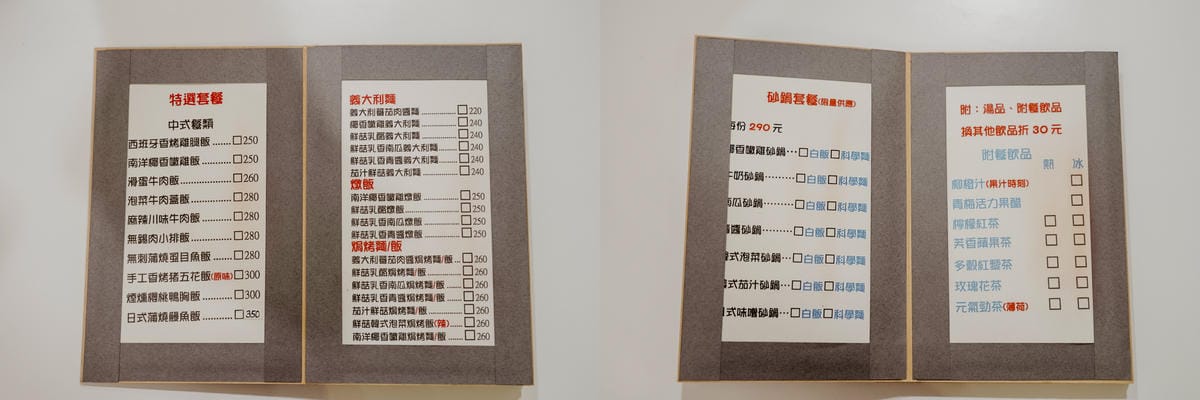 特選套餐
中式餐類
西班牙香烤雞腿飯......□250
南洋椰香嫩雞飯.........□250
滑蛋牛肉飯...............□260
泡菜牛肉蓋飯............□280
麻辣川味牛肉飯.........□280
無錫肉小排飯............□280
無刺蒲燒虱目魚飯......□280
手工香烤猪五花飯(原味)□300
煙燻櫻桃鴨胸飯.........□300
日式蒲燒鰻魚飯.........□350
義大利麵
義大利蕃茄肉醬麵............□220
椰香嫩雞義大利麵............□240
鮮菇乳酪義大利麵............□240
鮮菇乳香南瓜義大利麵......□240
鮮菇乳香青醬義大利麵......□240
茄汁鮮菇義大利麵............□240
燉飯
南洋椰香嫩雞燉飯............□250
鮮菇乳酪燉飯..................□250
鮮菇乳香南瓜燉飯............□250
鮮菇乳香青醬燉飯............□250
焗烤麵/飯
義大利蕃茄肉醬焗烤麵/飯...□260
鮮菇乳酪焗烤麵/飯............□260
鮮菇乳香南瓜焗烤麵/飯......□260
鮮菇乳香青醬焗烤麵/飯......□260
茄汁鮮菇焗烤麵/飯............□260
鮮菇韓式泡菜焗烤飯(辣)......□260
南洋椰香嫩雞焗烤麵/飯......□260
砂鍋套餐(限量供應)
份 290 元
椰香嫩雞砂鍋…□白飯□科學麵
牛奶砂鍋………□白飯□科學麵
南瓜砂鍋………□白飯□科學麵
青醬砂鍋………□白飯□科學麵
韓式泡菜砂鍋…□白飯□科學麵
日式茄汁砂鍋…□白飯□科學麵
日式味噌砂鍋…□白飯□科學麵
附：湯品、附餐飲品
換其他飲品折 30 元
附餐飲品
熱 冰
柳橙汁(果汁時刻) □
青梅活力果醋 □
檸檬紅茶 □ □
芙香蘋果茶 □ □
多穀紅藜茶 □ □
玫瑰花茶 □ □
元氣勁茶(薄荷) □ □